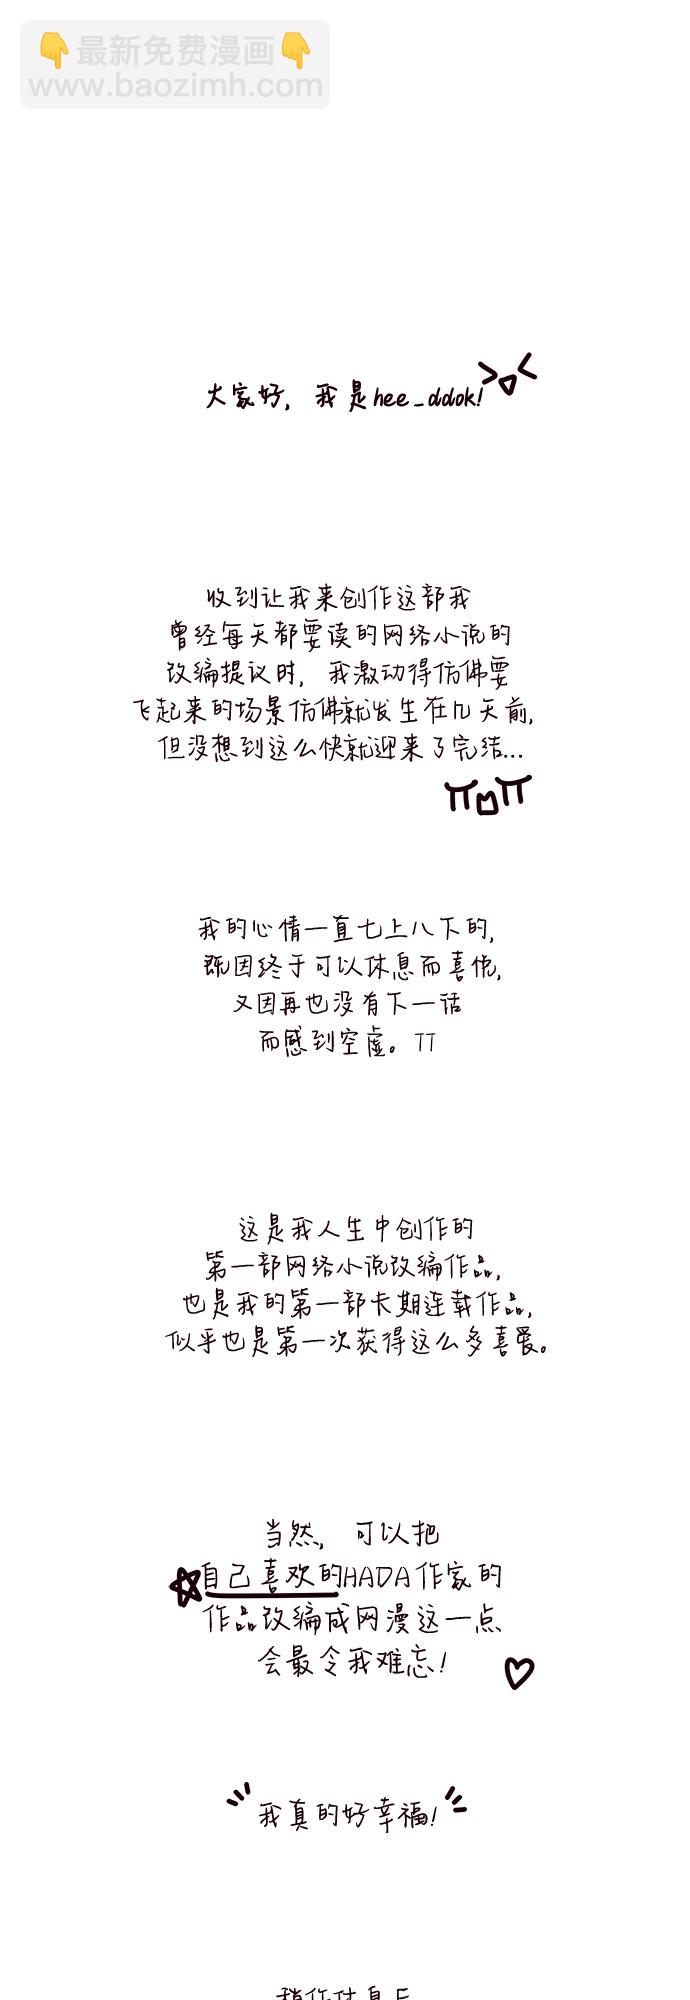 👇最新免费漫画👇
www.baozimh.com
大家好, 我是hee_ddok!
收到让我来创作这部我
曾经每天都要读的网络小说的
改编提议时, 我激动得仿佛要
飞起来的场景仿佛就发生在几天前,
但没想到这么快就迎来了完结...
我的心情一直七上八下的,
既因终于可以休息而喜悦,
又因再也没有下一话
而感到空虚。TT
这是我人生中创作的
第一部网络小说改编作品,
也是我的第一部长期连载作品,
似乎也是第一次获得这么多喜爱。
当然, 可以把
自己喜欢的HADA作家的
作品改编成网漫这一点
会最令我难忘!
我真的好幸福!